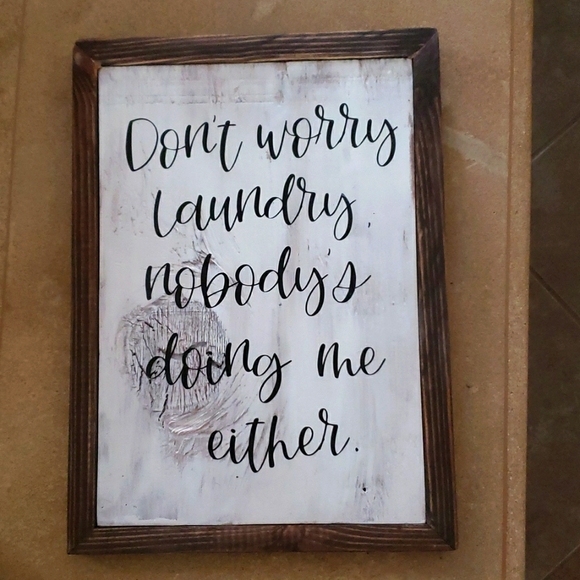 Don't worry
laundry,
nobody's
doing me
either.